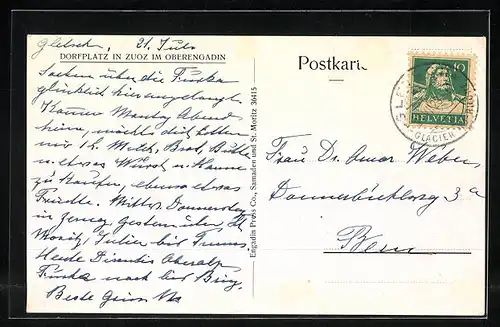 Gletsch, 21. Juli
DORFPLATZ IN ZUOZ IM OBERENGADIN
Soeben über die Furka
glücklich hier angelangt.
Komme Montag Abend
heim, möchte dich bitten
mir 1 l. Milch, Brot, Butter
u. etwas Wurst u.
zu kaufen, ebenso etwas
Früchte. Donnerstag
in gestern über St.
Moritz, Julier bis
Heute Disentis Oberalp
Furka nach bis Brig.
Beste Grüsse
Engadin Press Co., Samaden und St. Moritz 36415
Postkarte
10
HELVETIA
GLETSCH
(GLACIER DU RHONE)
Frau Dr. Omar Weber
Donnerbühlweg 3a
Bern